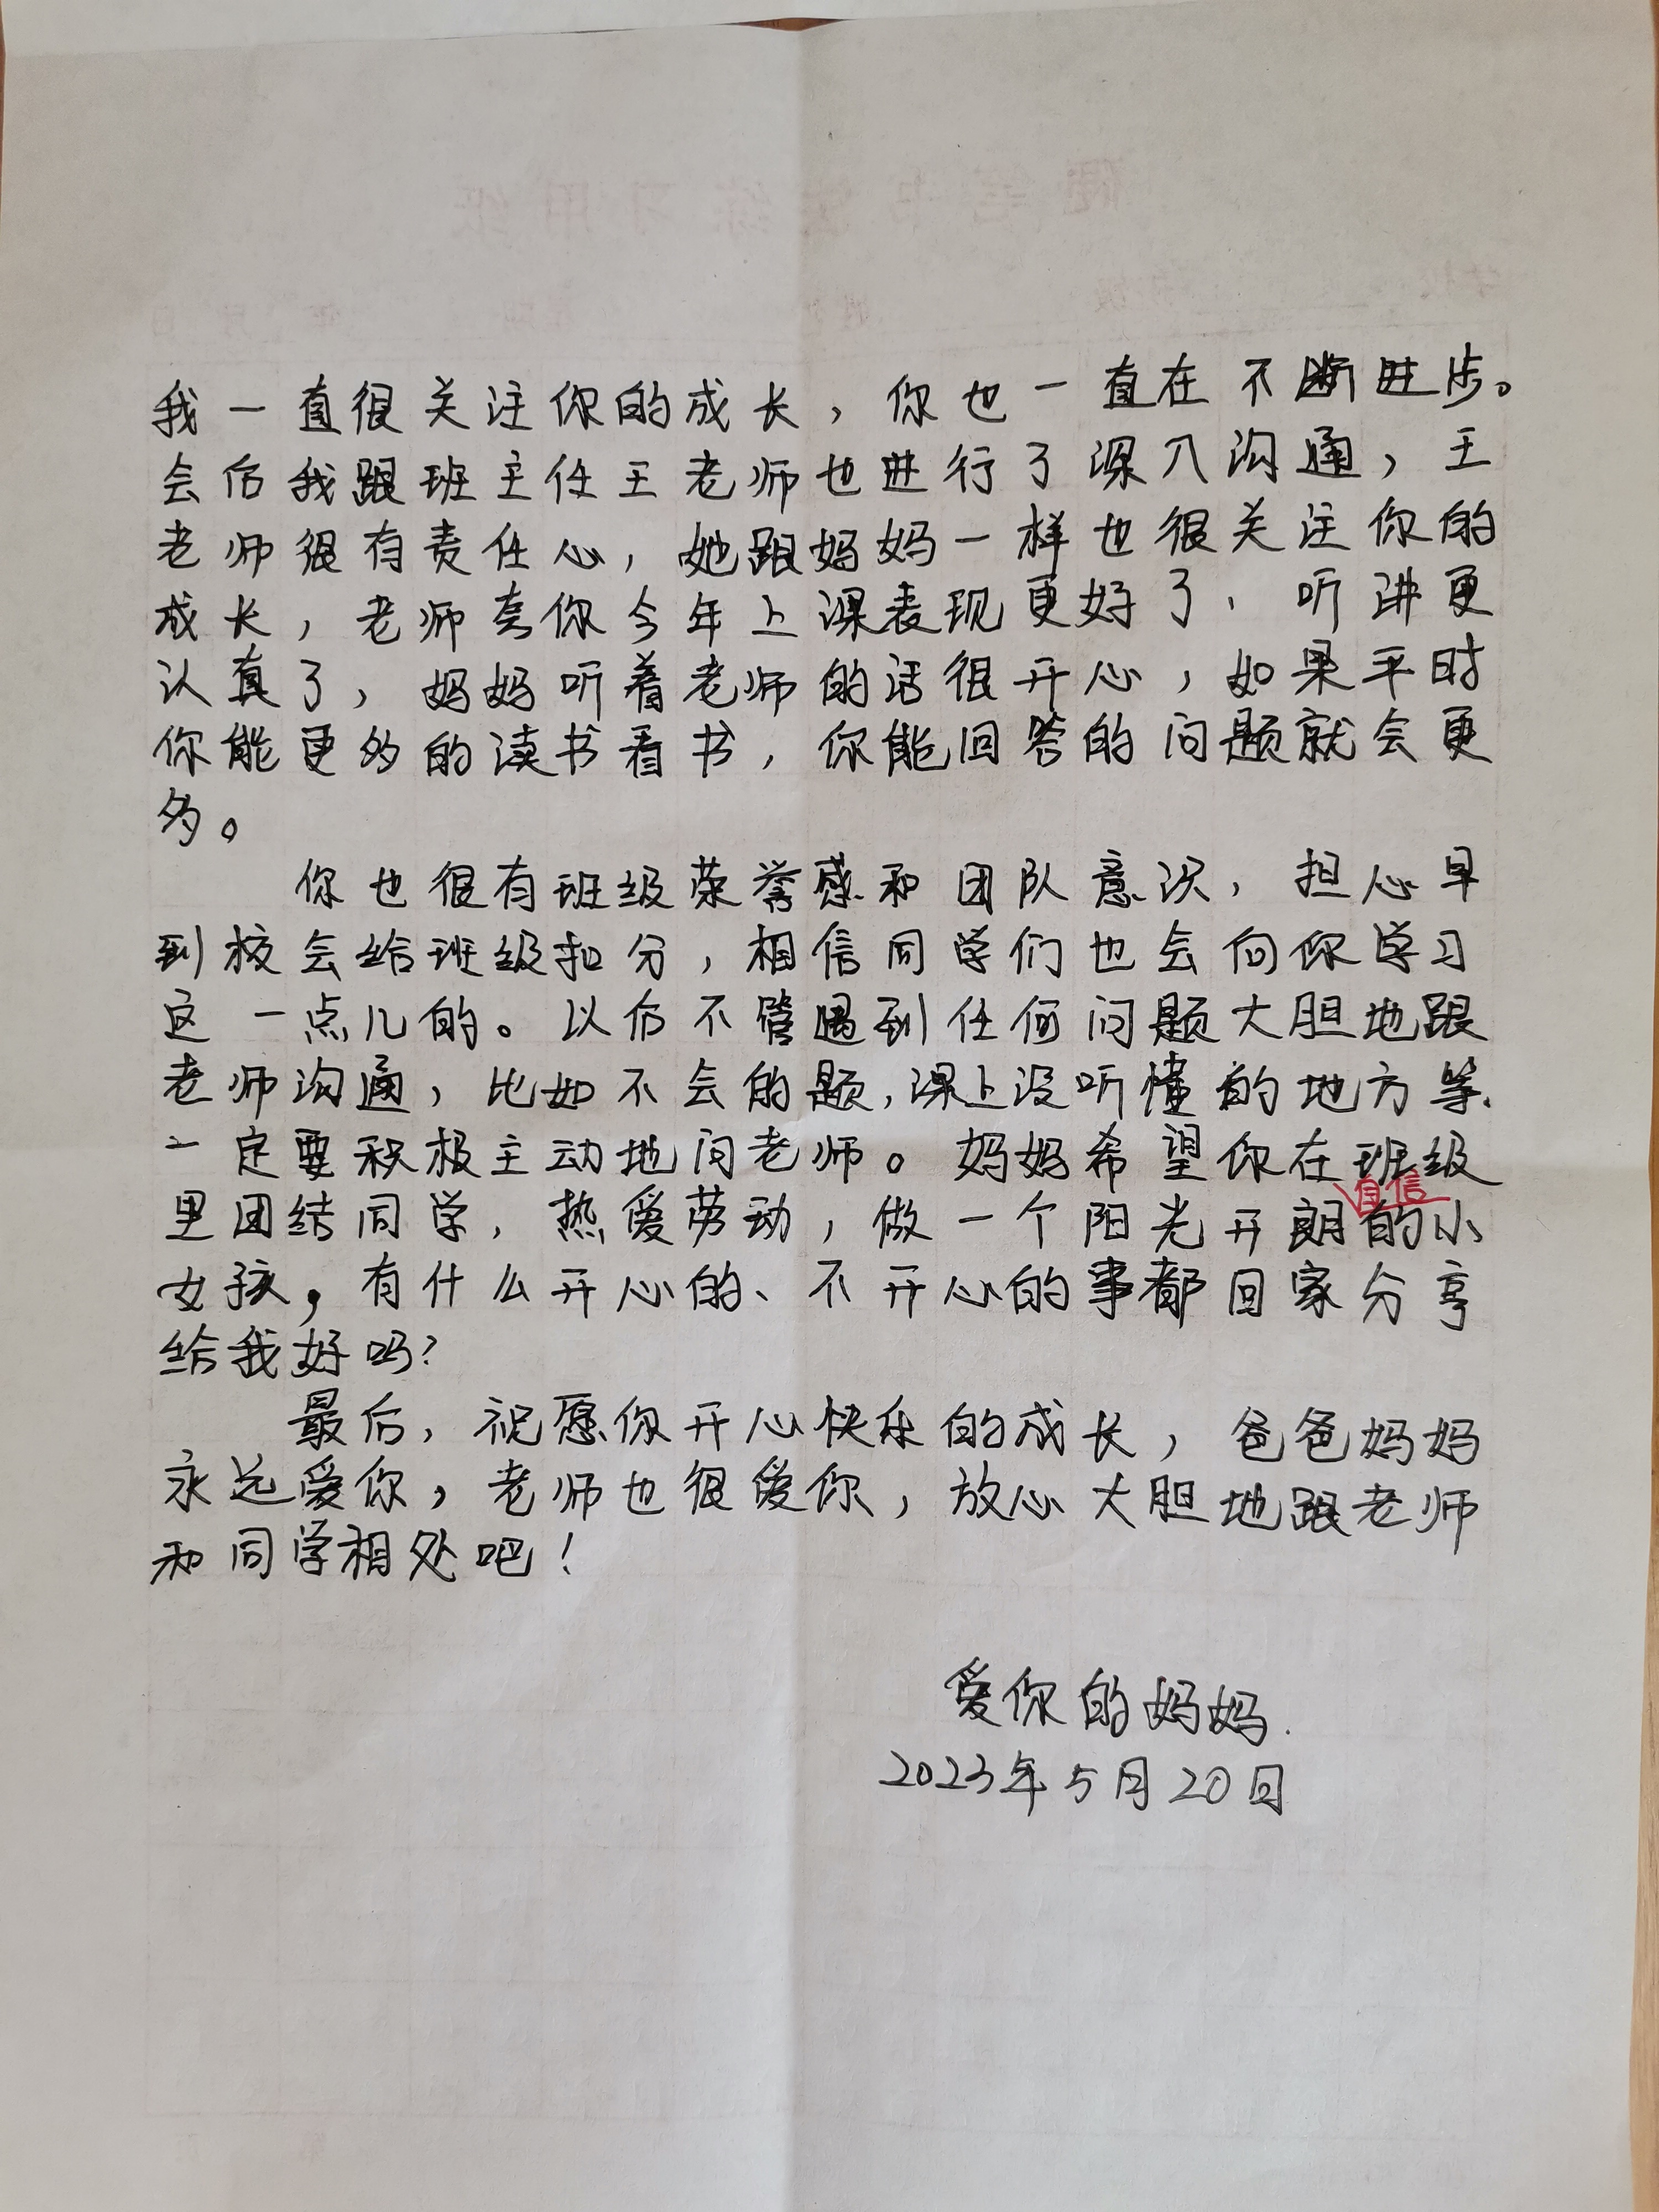 我一直很关注你的成长，你也一直在不断进步。
会后我跟班主任王老师也进行了深入沟通，王
老师很有责任心，她跟妈妈一样也很关注你的
成长，老师夸你今年上课表现更好了、听讲更
认真了，妈妈听着老师的话很开心，如果平时
你能更多的读书看书，你能回答的问题就会更
多。
你也很有班级荣誉感和团队意识，担心早
到校会给班级扣分，相信同学们也会向你学习
这一点儿的。以后不管遇到任何问题大胆地跟
老师沟通，比如不会的题，课上没听懂的地方等、
一定要积极主动地问老师。妈妈希望你在班级
自信
里团结同学，热爱劳动，做一个阳光开朗的小
女孩，有什么开心的、不开心的事都回家分享
给我好吗？
最后，祝愿你开心快乐的成长，爸爸妈妈
永远爱你，老师也很爱你，放心大胆地跟老师
和同学相处吧！
爱你的妈妈.
2023年5月20日